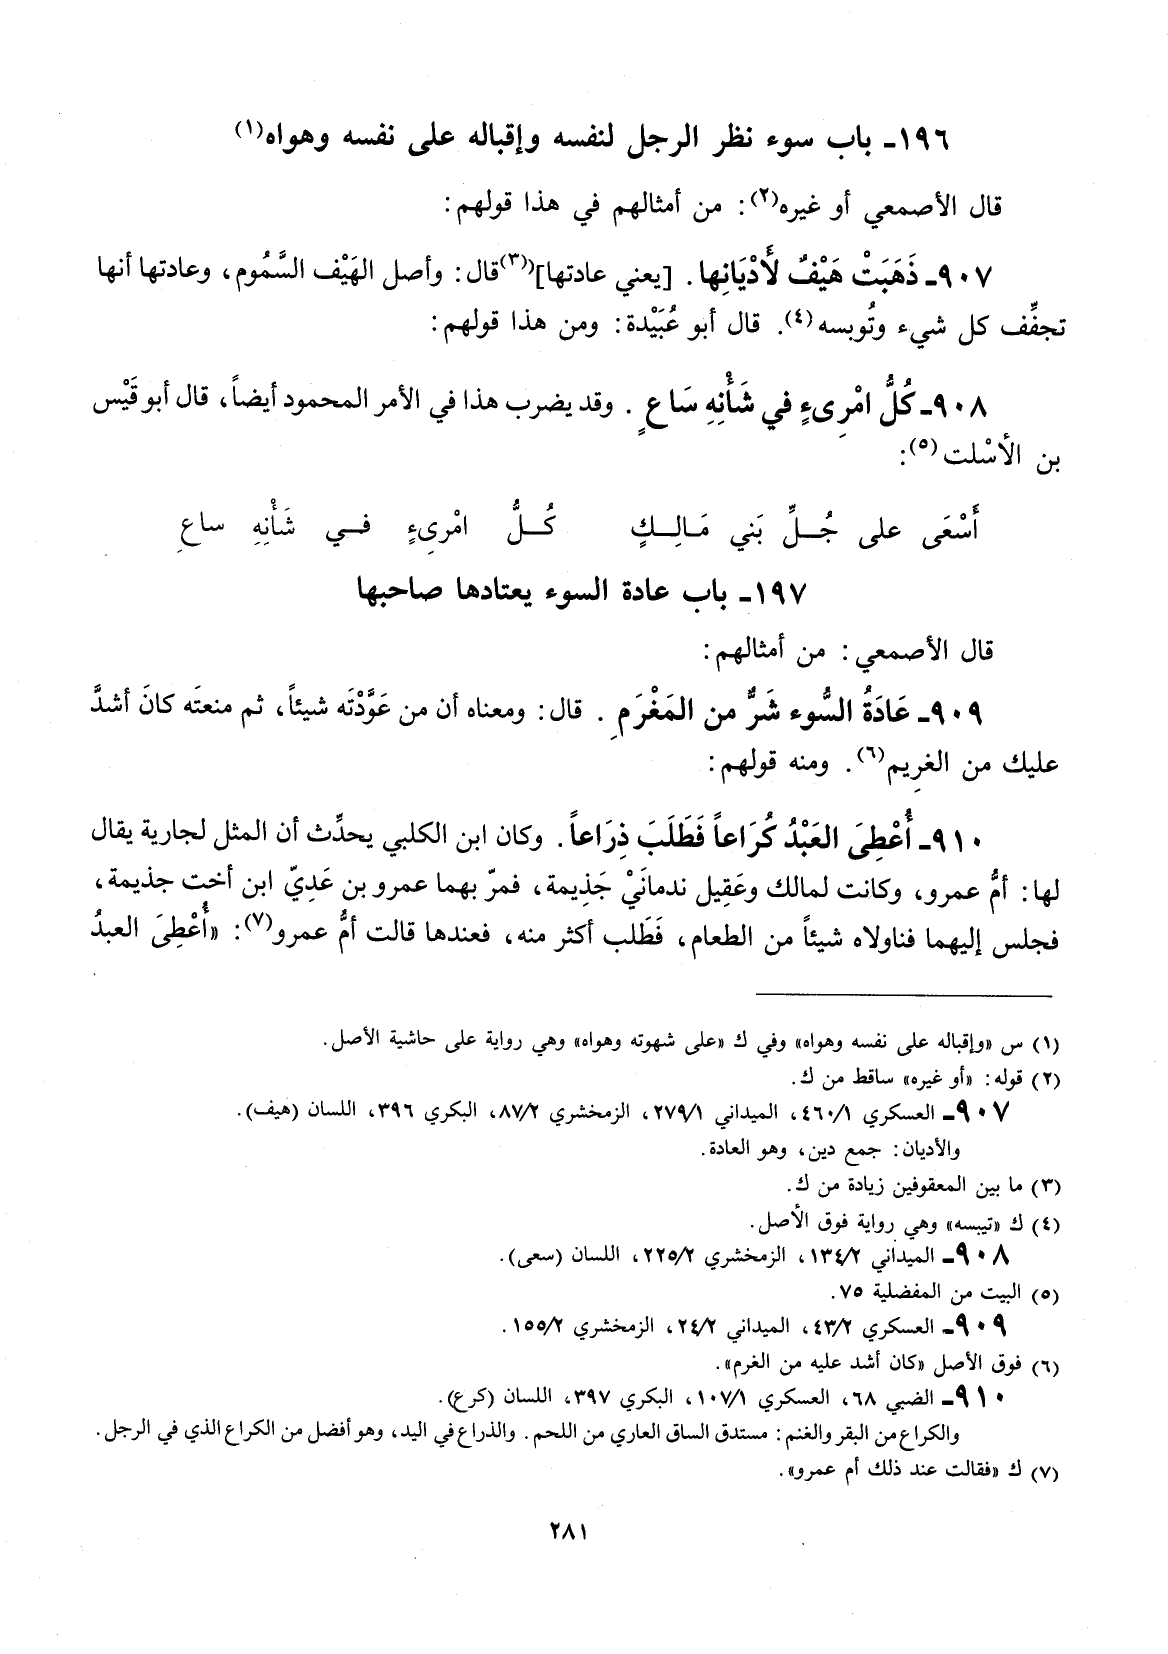 ١٩٦ـ باب سوء نظر الرجل لنفسه وإقباله على نفسه وهواه(١)
قال الأصمعي أو غيره(٢): من أمثالهم في هذا قولهم:
٩٠٧ـ ذَهَبَتْ هَيْفٌ لأَدْيَانِها. [يعني عادتها](٣) قال: وأصل الهَيْف السَّمُوم، وعادتها أنها
تجفِّف كل شيء وتُوبسه(٤). قال أبو عُبَيْدة: ومن هذا قولهم:
٩٠٨ـ كُلُّ امْرِىءٍ في شَأْنِهِ سَاعٍ. وقد يضرب هذا في الأمر المحمود أيضاً، قال أبو قَيْس
بن الأَسْلت(٥):
أَسْعَى على جُلِّ بَني مَالِكٍ كُلُّ امْرِىءٍ في شَأْنِهِ ساعِ
١٩٧ـ باب عادة السوء يعتادها صاحبها
قال الأصمعي: من أمثالهم:
٩٠٩ـ عَادَةُ السُّوء شَرٌّ من المَغْرَمِ. قال: ومعناه أن من عَوَّدْتَه شيئاً، ثم منعتَه كانَ أشدَّ
عليك من الغرِيم(٦). ومنه قولهم:
٩١٠ـ أُعْطِيَ العَبْدُ كُرَاعاً فَطَلَبَ ذِرَاعاً. وكان ابن الكلبي يحدِّث أن المثل لجارية يقال
لها: أمُّ عمرو، وكانت لمالك وعَقِيل ندمانَيْ جَذِيمة، فمرّ بهما عمرو بن عَدِيّ ابن أخت جذيمة،
فجلس إليهما فناولاه شيئاً من الطعام، فَطَلب أكثر منه، فعندها قالت أمُّ عمرو(٧): «أُعْطِيَ العبدُ
(١) س «وإقباله على نفسه وهواه» وفي ك «على شهوته وهواه» وهي رواية على حاشية الأصل.
(٢) قوله: «أو غيره» ساقط من ك.
٩٠٧ـ العسكري ٤٦٠/١، الميداني ٢٧٩/١، الزمخشري ٨٧/٢، البكري ٣٩٦، اللسان (هيف).
والأديان: جمع دين، وهو العادة.
(٣) ما بين المعقوفين زيادة من ك.
(٤) ك «تيبسه» وهي رواية فوق الأصل.
٩٠٨ـ الميداني ١٣٤/٢، الزمخشري ٢٢٥/٢، اللسان (سعى).
(٥) البيت من المفضلية ٧٥.
٩٠٩ـ العسكري ٤٣/٢، الميداني ٢٤/٢، الزمخشري ١٥٥/٢.
(٦) فوق الأصل «كان أشد عليه من الغرم».
٩١٠ـ الضبي ٦٨، العسكري ١٠٧/١، البكري ٣٩٧، اللسان (كرع).
والكراع من البقر والغنم: مستدق الساق العاري من اللحم. والذراع في اليد، وهو أفضل من الكراع الذي في الرجل.
(٧) ك «فقالت عند ذلك أم عمرو».
٢٨١